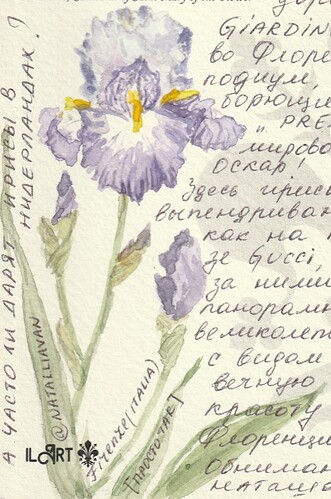 GIARDIN
во Флорен
подиум,
борющи
и PRE
мирово
Оскар!
Здесь ирис
выпендриван
как на
зе Gucci,
за ними
панорам
великолеп
с видом
вечную
красоту
Флоренции
Обнимаю
НАТАША
А ЧАСТО ЛИ ДАРЯТ ИРИСЫ В
НИДЕРЛАНДАХ?
@NATALLIAVAN
Firenze (ITALIA)
[ПРОСТО ТАК]
ILART